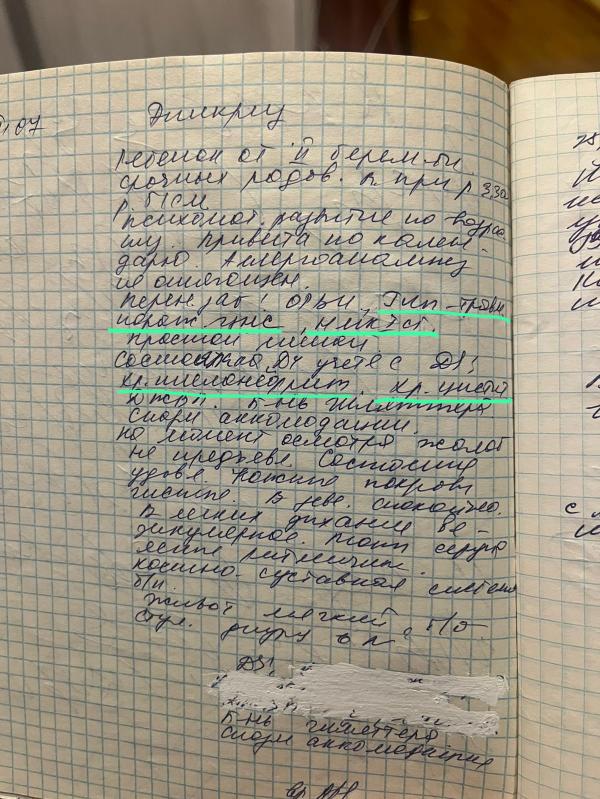 07
Эпикриз
Ребенок от II берем-ти
срочных родов. В при р 3,30
р. 51см
психомот. развитие по возрас
ту. Прививта по кален-
дарю Аллергоанамнез
не отягощен.
Перен. заб: ОРВИ, Гип-травм
пораж ЦНС,
простой лишай
Состоит на Ду учете с DS:
хр. пиелонефрит, хр. цистит
б-нь Жилттера
Спазм аккомодации.
На момент осмотра жалоб
не предъяве. Состояние
удовл. Кожные покровы
чистые. В зеве спокойно.
В легких дыхание ве-
зикулярное. Тоны сердца
ясные ритмичные.
Костно-суставная система
б/п.
Живот мягкий б/б
Стул, диурез в N
DS:
Б-нь Жилттера
Спазм аккомодации